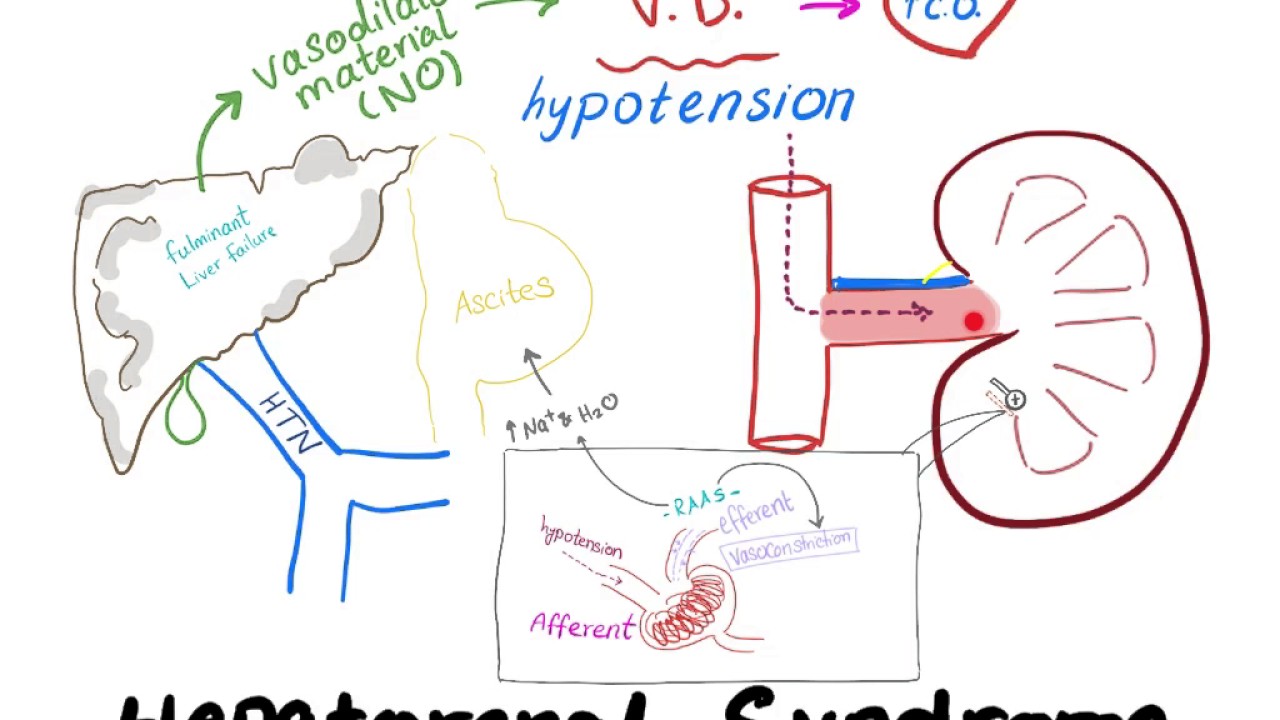 vasodilat
material
(NO)
V.D.
↑C.O.
hypotension
fulminant
Liver failure
Ascites
HTN
↑ Na⁺ & H₂O
-RAAS-
efferent
Vasoconstriction
hypotension
Afferent
Hepatorenal Syndrome